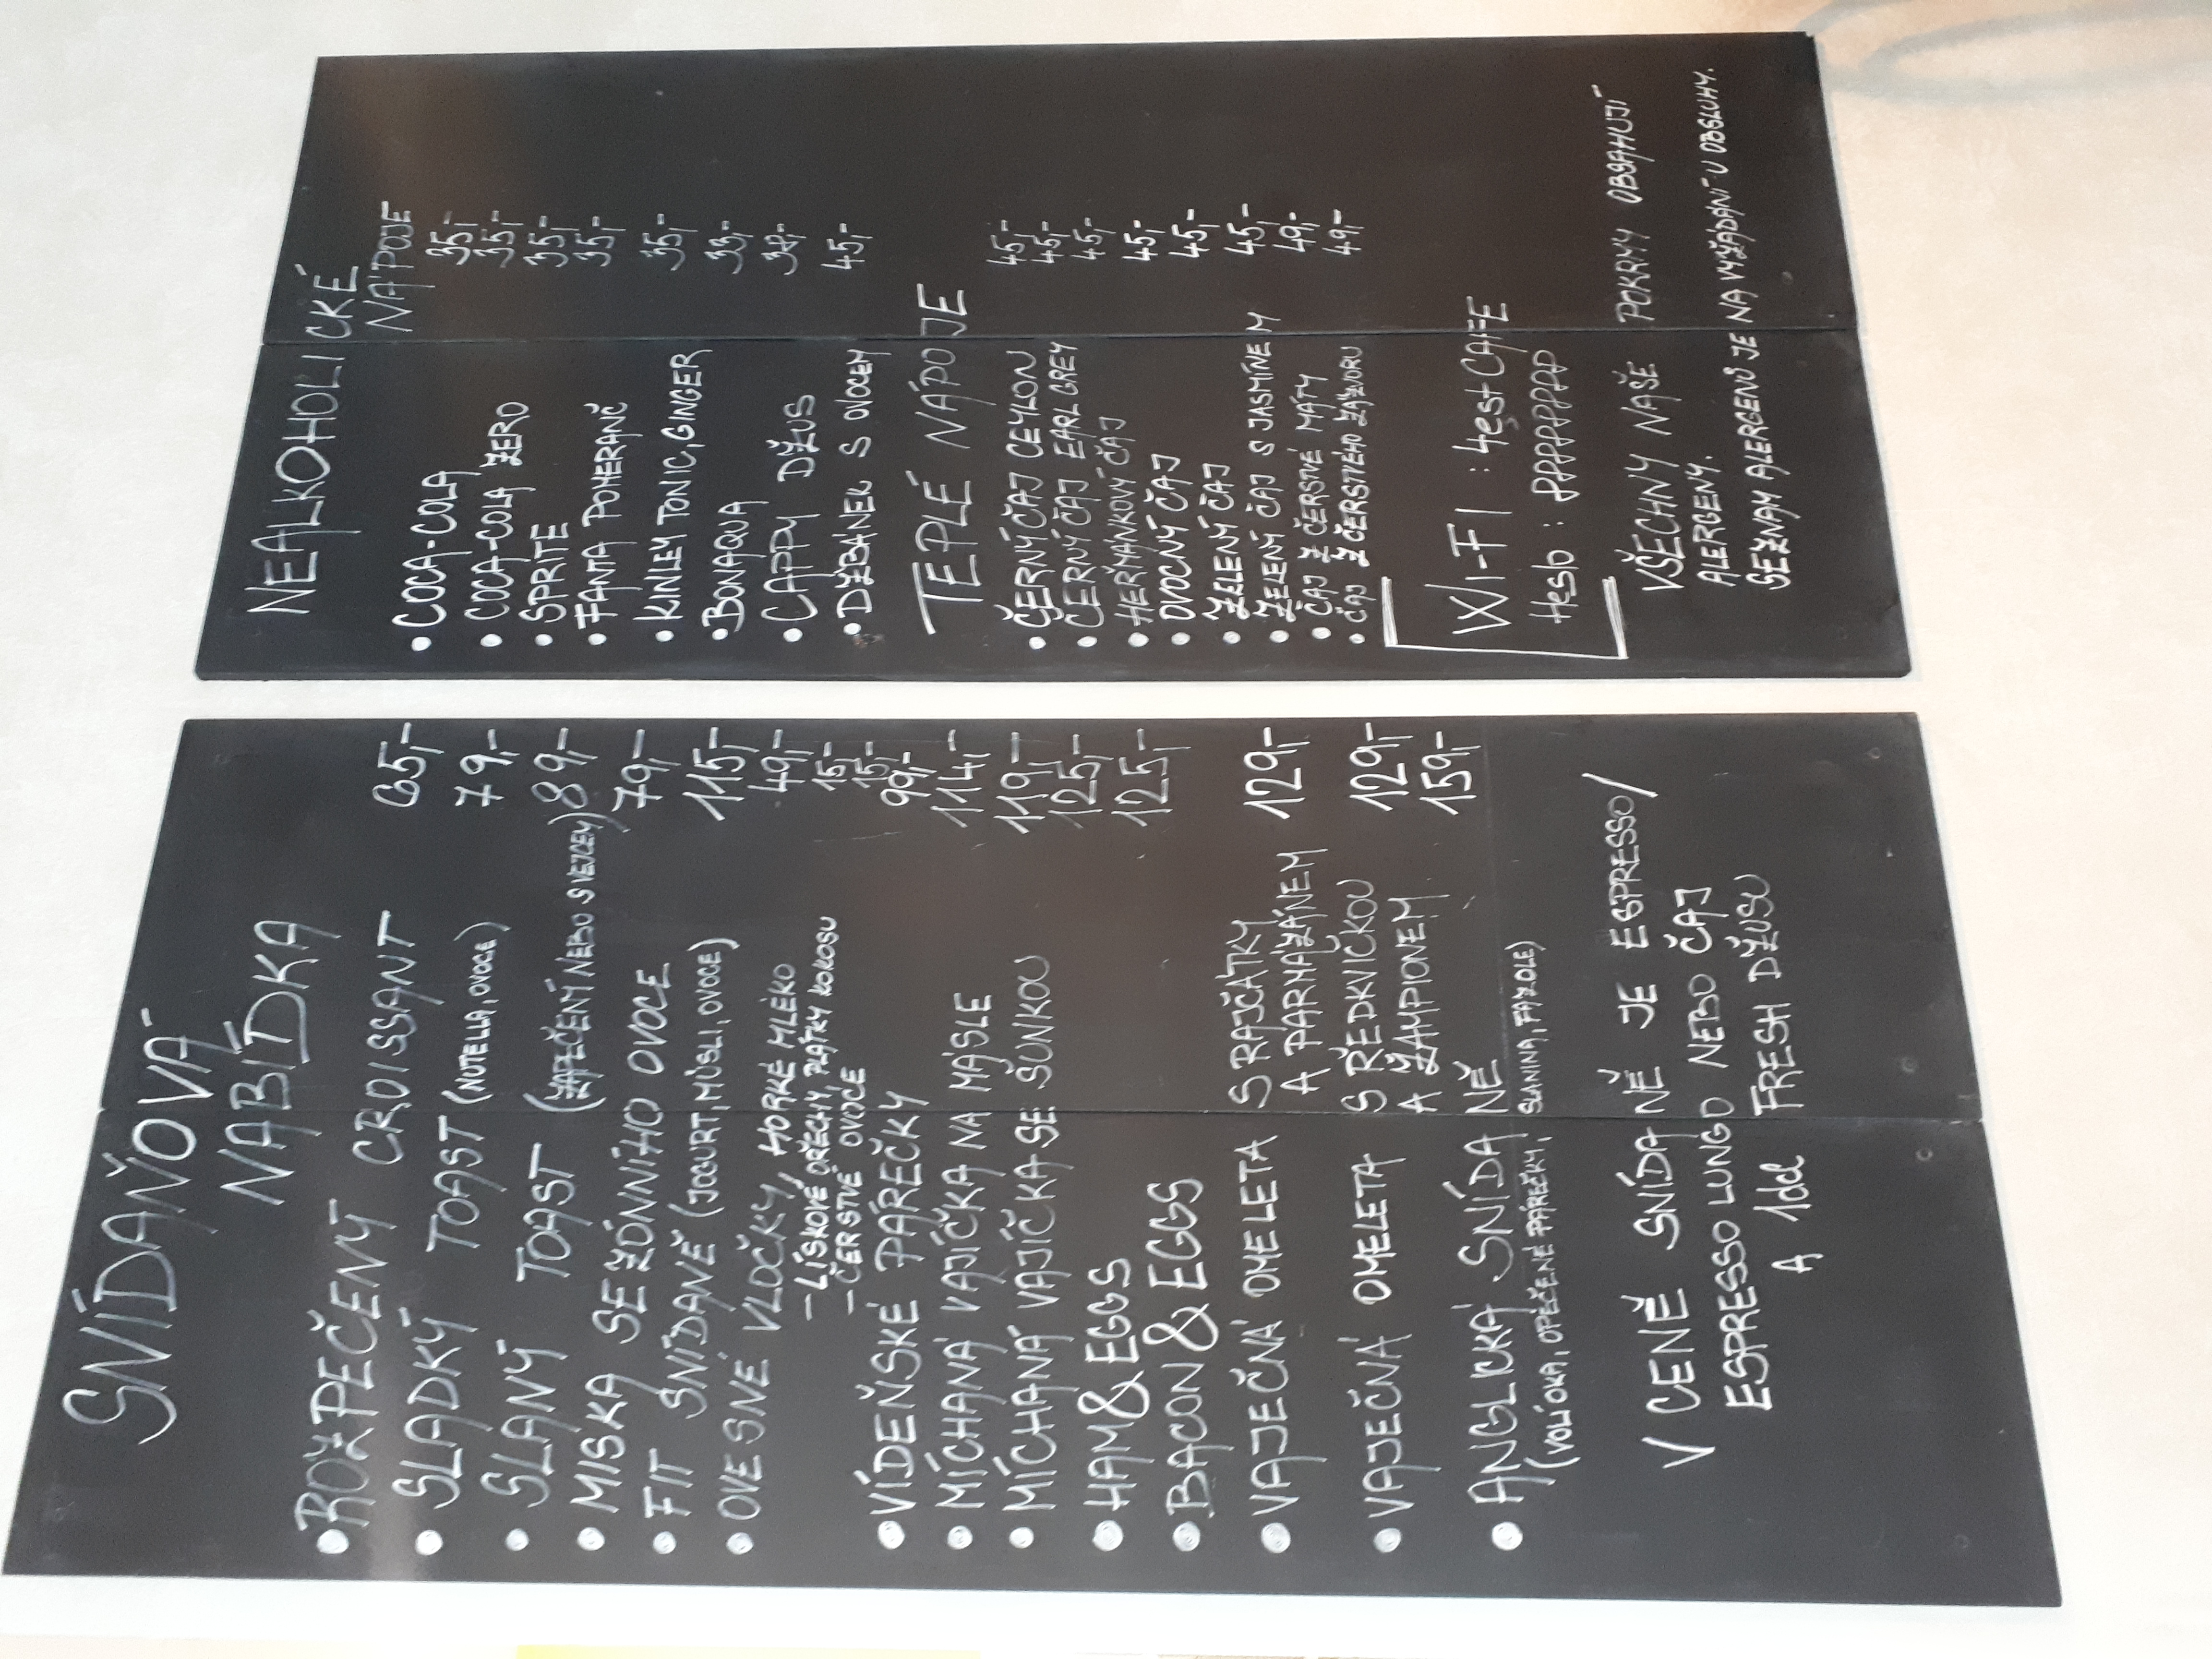 SNÍDAŇOVÁ
NABÍDKA
• ROZPEČENÝ CROISSANT 65,-
• SLADKÝ TOAST (NUTELLA, OVOCE) 79,-
• SLANÝ TOAST (ZAPEČENÝ NEBO S VEJCEM) 89,-
• MISKA SEZÓNNÍHO OVOCE 79,-
• FIT SNÍDANĚ (JOGURT, MÜSLI, OVOCE) 115,-
• OVESNÉ VLOČKY, HORKÉ MLÉKO 49,-
- LÍSKOVÉ OŘECHY, PLÁTKY KOKOSU 15,-
- ČERSTVÉ OVOCE 15,-
• VÍDEŇSKÉ PÁREČKY 99,-
• MÍCHANÁ VAJÍČKA NA MÁSLE 114,-
• MÍCHANÁ VAJÍČKA SE ŠUNKOU 119,-
• HAM & EGGS 125,-
• BACON & EGGS 125,-
• VAJEČNÁ OMELETA S RAJČÁTKY
A PARMAZÁNEM 129,-
• VAJEČNÁ OMELETA S ŘEDKVIČKOU
A ŽAMPIONEM 129,-
• ANGLICKÁ SNÍDANĚ 159,-
(VOLÍ OKA, OPEČENÉ PÁREČKY, SLANINA, FAZOLE)
V CENĚ SNÍDANĚ JE ESPRESSO/
ESPRESSO LUNGO NEBO ČAJ
A 1dcl FRESH DŽUSU
NEALKOHOLICKÉ
NÁPOJE
• COCA-COLA 35,-
• COCA-COLA ZERO 35,-
• SPRITE 35,-
• FANTA POMERANČ 35,-
• KINLEY TONIC, GINGER 35,-
• BONAQUA 33,-
• CAPPY DŽUS 38,-
• DŽBÁNEK S OVOCEM 45,-
TEPLÉ NÁPOJE
• ČERNÝ ČAJ CEYLON 45,-
• ČERNÝ ČAJ EARL GREY 45,-
• HEŘMÁNKOVÝ ČAJ 45,-
• OVOCNÝ ČAJ 45,-
• ZELENÝ ČAJ 45,-
• ZELENÝ ČAJ S JASMÍNEM 45,-
• ČAJ Z ČERSTVÉ MÁTY 49,-
• ČAJ Z ČERSTVÉHO ZÁZVORU 49,-
WI-FI : 4est CAFE
Heslo : PPPPPPPP
VŠECHNY NAŠE POKRMY OBSAHUJÍ
ALERGENY.
SEZNAM ALERGENŮ JE NA VYŽÁDÁNÍ U OBSLUHY.